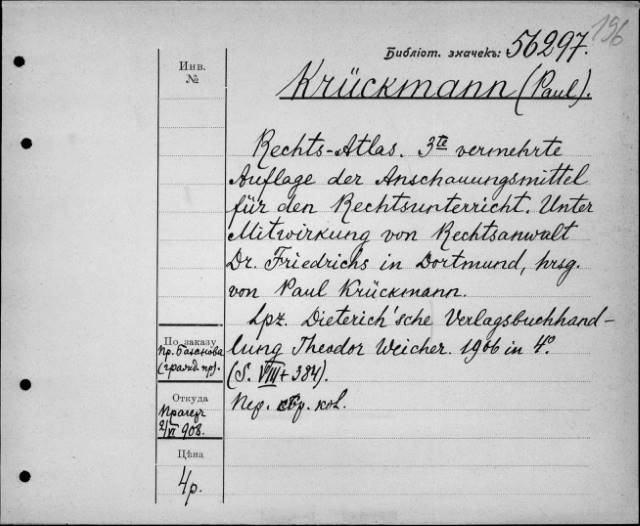 196
Библіот. значекъ: 56297.
Инв.
№
Krückmann (Paul).
Rechts-Atlas. 3te vermehrte
Auflage der Anschauungsmittel
für den Rechtsunterricht. Unter
Mitwirkung von Rechtsanwalt
Dr. Friedrichs in Dortmund, hrsg.
von Paul Krückmann.
Lpz. Dieterich'sche Verlagsbuchhand-
lung Theodor Weicher. 1906 in 4°.
(S. VIII + 384).
Пер. кор.
По заказу
пр.
(гражд. пр).
Откуда
2/VI 908.
Цѣна
4р.